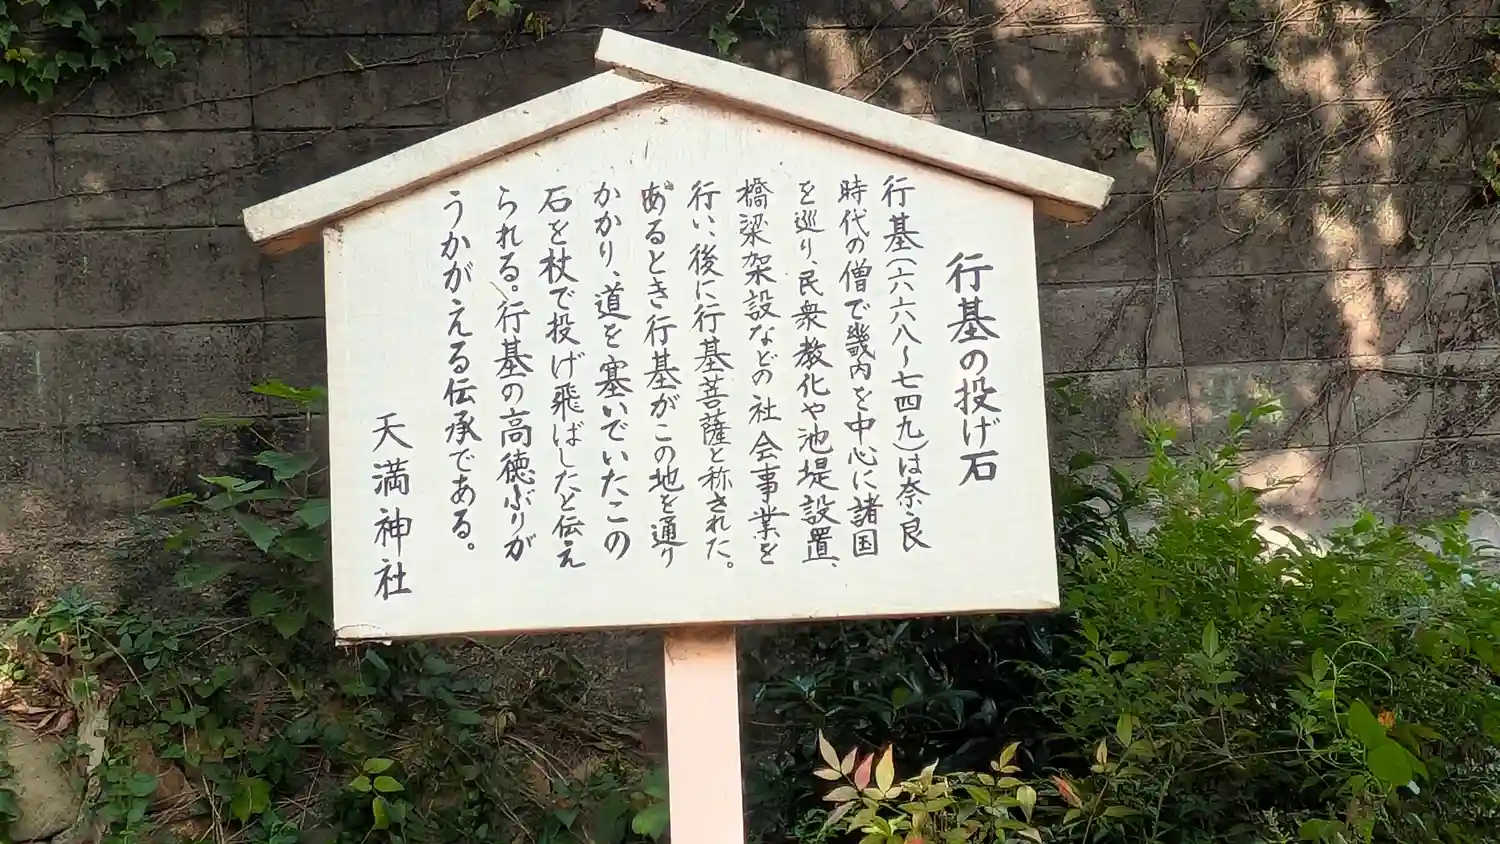 行基の投げ石
行基(六六八～七四九)は奈良
時代の僧で畿内を中心に諸国
を巡り、民衆教化や池堤設置、
橋梁架設などの社会事業を
行い、後に行基菩薩と称された。
あるとき行基がこの地を通り
かかり、道を塞いでいたこの
石を杖で投げ飛ばしたと伝え
られる。行基の高徳ぶりが
うかがえる伝承である。
天満神社